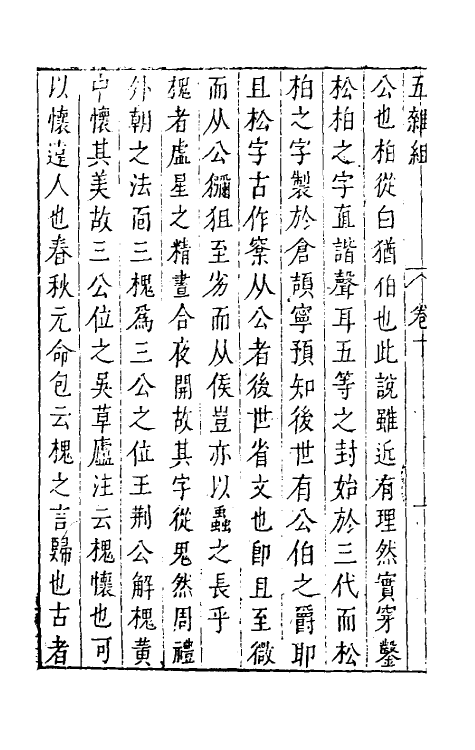 五雜組 卷十
公也柏從白猶伯也此說雖近有理然實穿鑿
松柏之字直諧聲耳五等之封始於三代而松
柏之字製於倉頡寧預知後世有公伯之爵耶
且松字古作㮤从公者後世省文也卽且至微
而从公獼狙至劣而从侯豈亦以蟲之長乎
槐者虛星之精晝合夜開故其字從鬼然周禮
外朝之法面三槐爲三公之位王荆公解槐黄
中懷其美故三公位之吳草廬注云槐懷也可
以懷遠人也春秋元命包云槐之言歸也古者